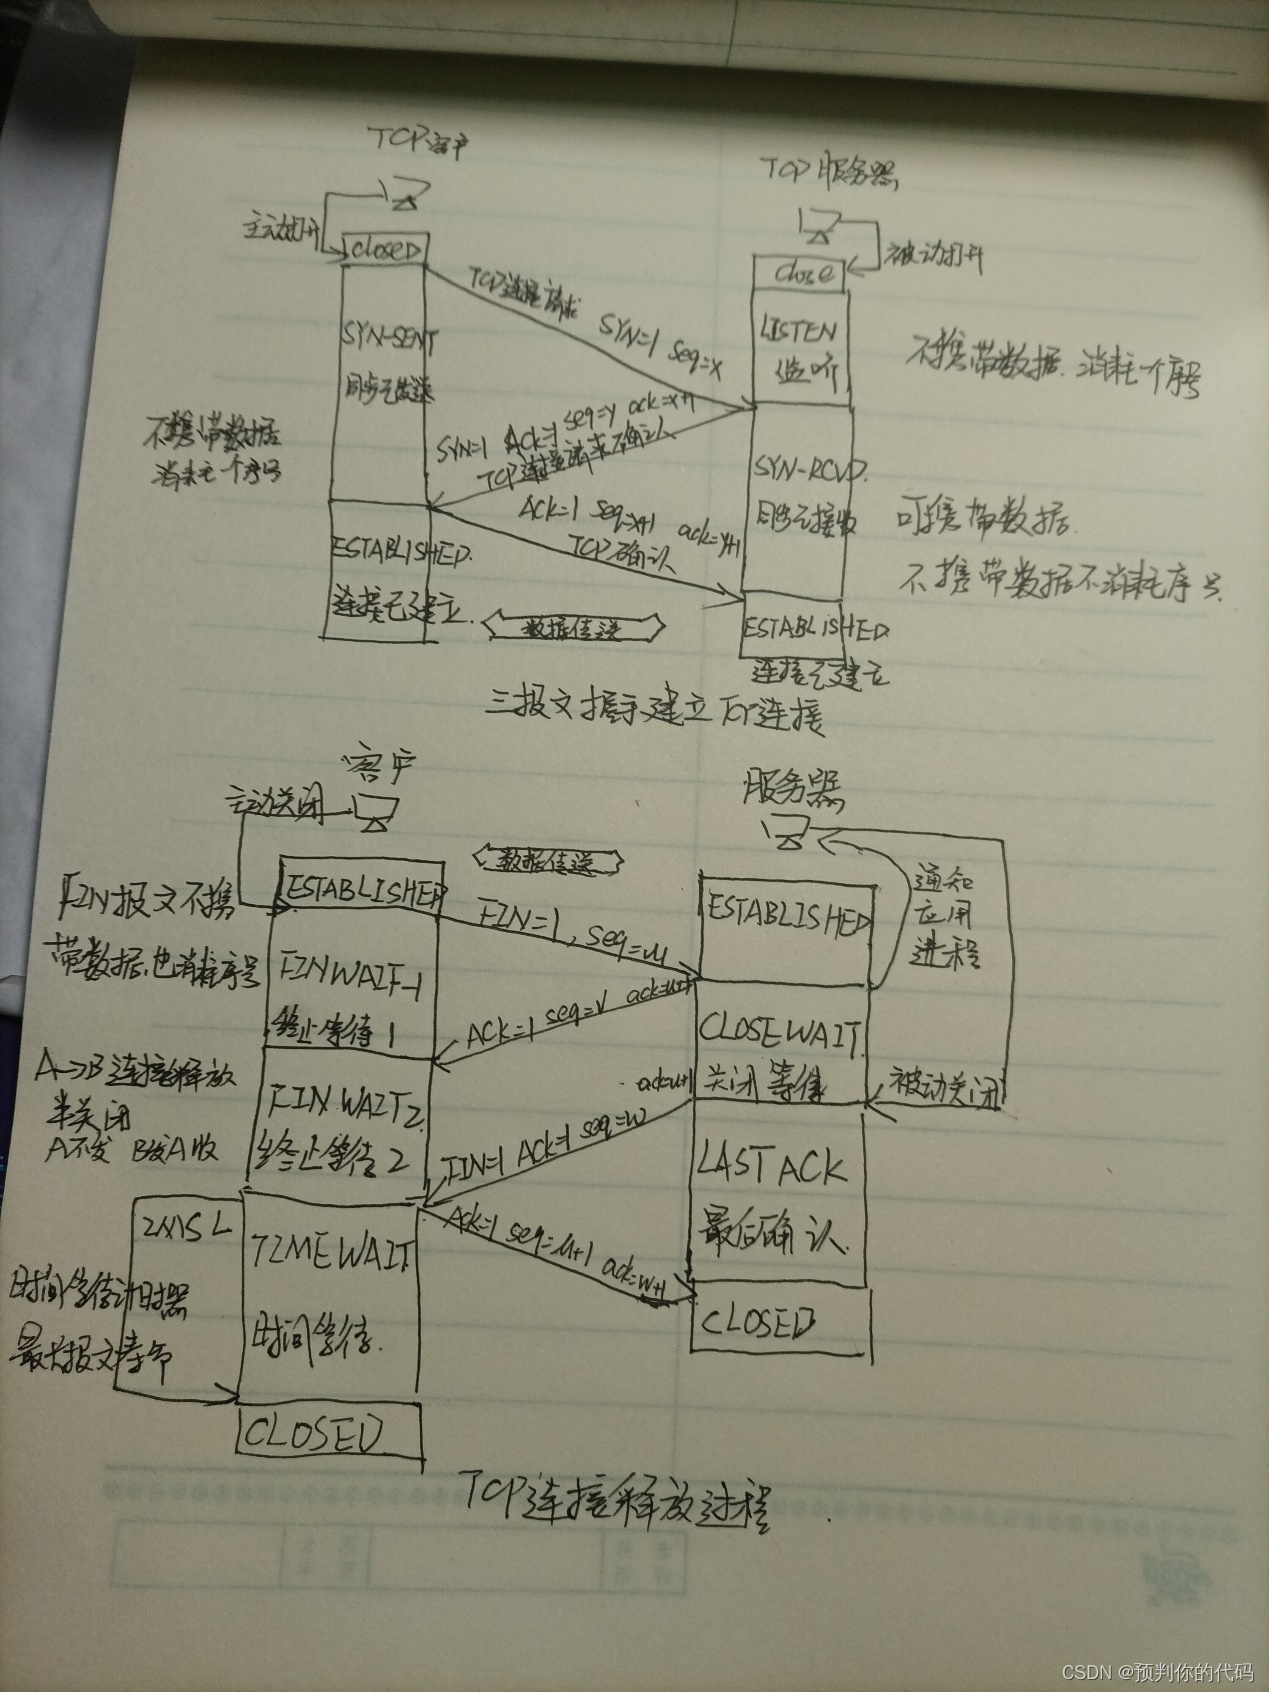 TCP客户
TCP服务器
主动打开
closed
close
被动打开
TCP连接请求
SYN=1 seq=x
SYN-SENT
同步已发送
LISTEN
监听
不携带数据.消耗一个序号
不携带数据
消耗一个序号
SYN=1 Ack=1 seq=y ack=x+1
TCP连接请求确认
SYN-RCVD.
同步已接收
ACK=1 seq=x+1 ack=y+1
TCP确认
可携带数据.
不携带数据不消耗序号.
ESTABLISHED.
连接已建立.
数据传送
ESTABLISHED.
连接已建立
三报文握手建立TCP连接
客户
服务器
主动关闭
数据传送
通知
应用
进程
ESTABLISHED
ESTABLISHED
FIN报文不携
带数据,也消耗序号
FIN=1, seq=u
FINWAIT-1
终止等待1
ACK=1 seq=v ack=u+1
CLOSEWAIT.
关闭等待
被动关闭
A→B连接释放
半关闭
A不发 B发A收
FIN WAIT2.
终止等待2
FIN=1 ACK=1 seq=w
ack=u+1
LAST ACK
最后确认.
2MSL
TIMEWAIT
时间等待.
ACK=1 seq=u+1 ack=w+1
时间等待计时器
最大报文寿命
CLOSED
CLOSED
TCP连接释放过程.
CSDN @预判你的代码